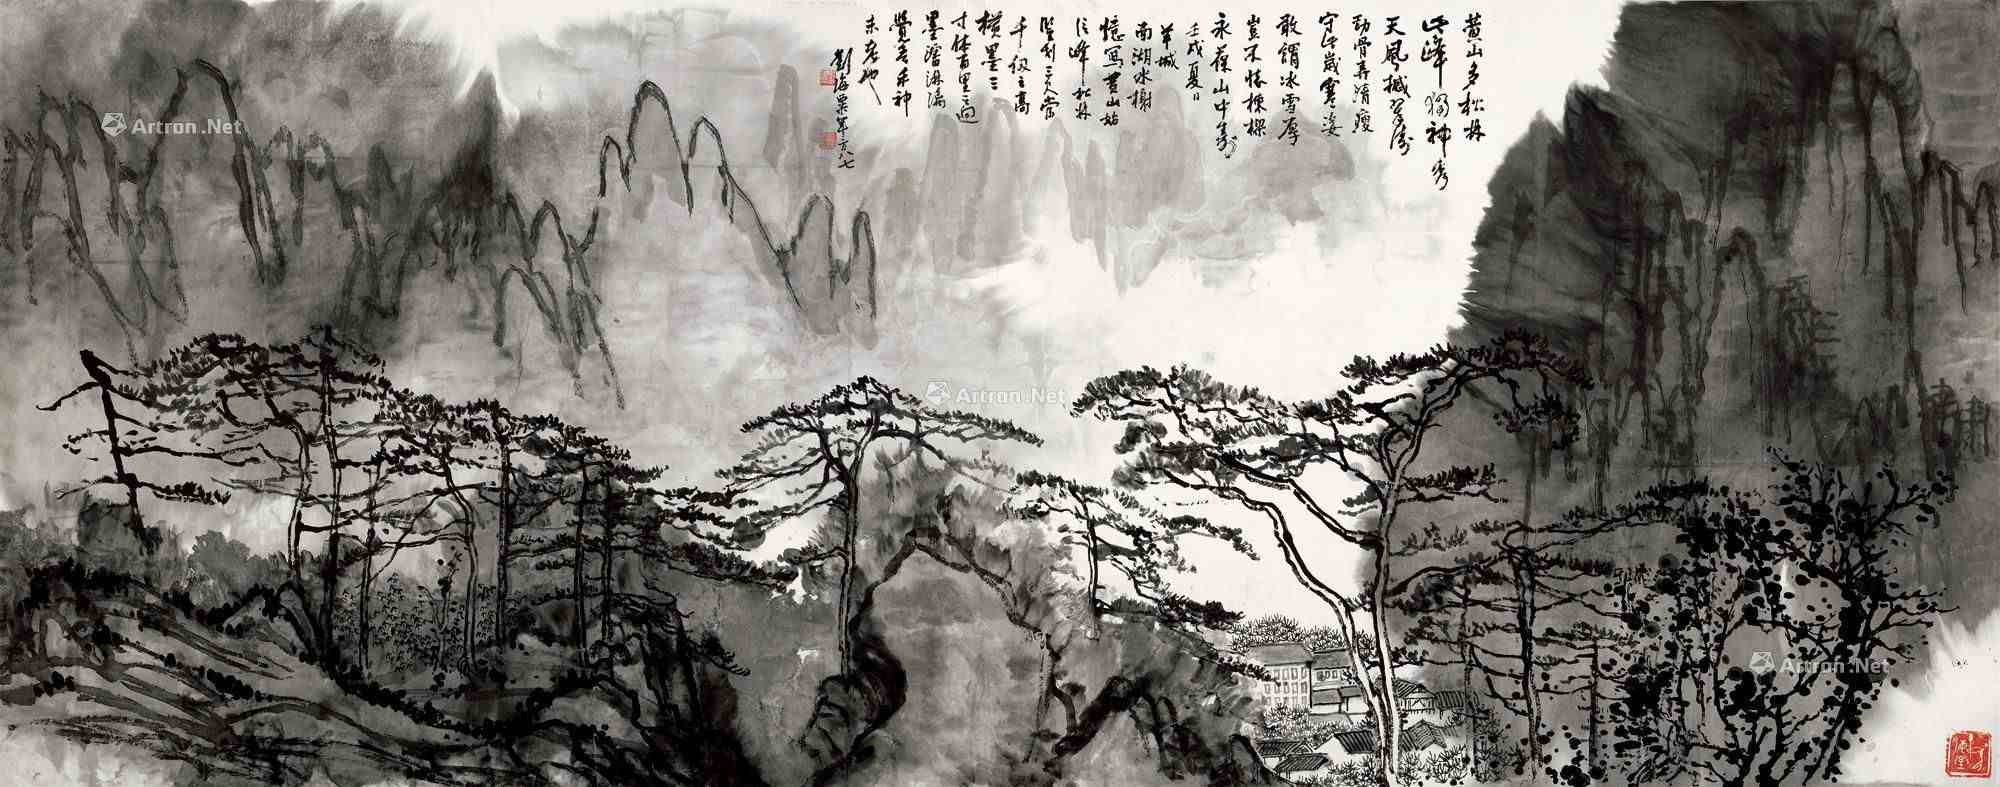 黄山多松林
此峰獨神秀
天風撼翠濤
勁骨弄清瘦
守此歲寒姿
敢謂冰雪厚
豈不怀棟樑
永葆山中壽
壬戌夏日
羊城
南湖水榭
憶寫黄山始
信峰松林
千仭之高
橫墨三
寸体百里之迥
墨瀋淋漓
覺吾手神
未老也
劉海粟年方八七
Artron.Net
Artron.Net
Artron.Net